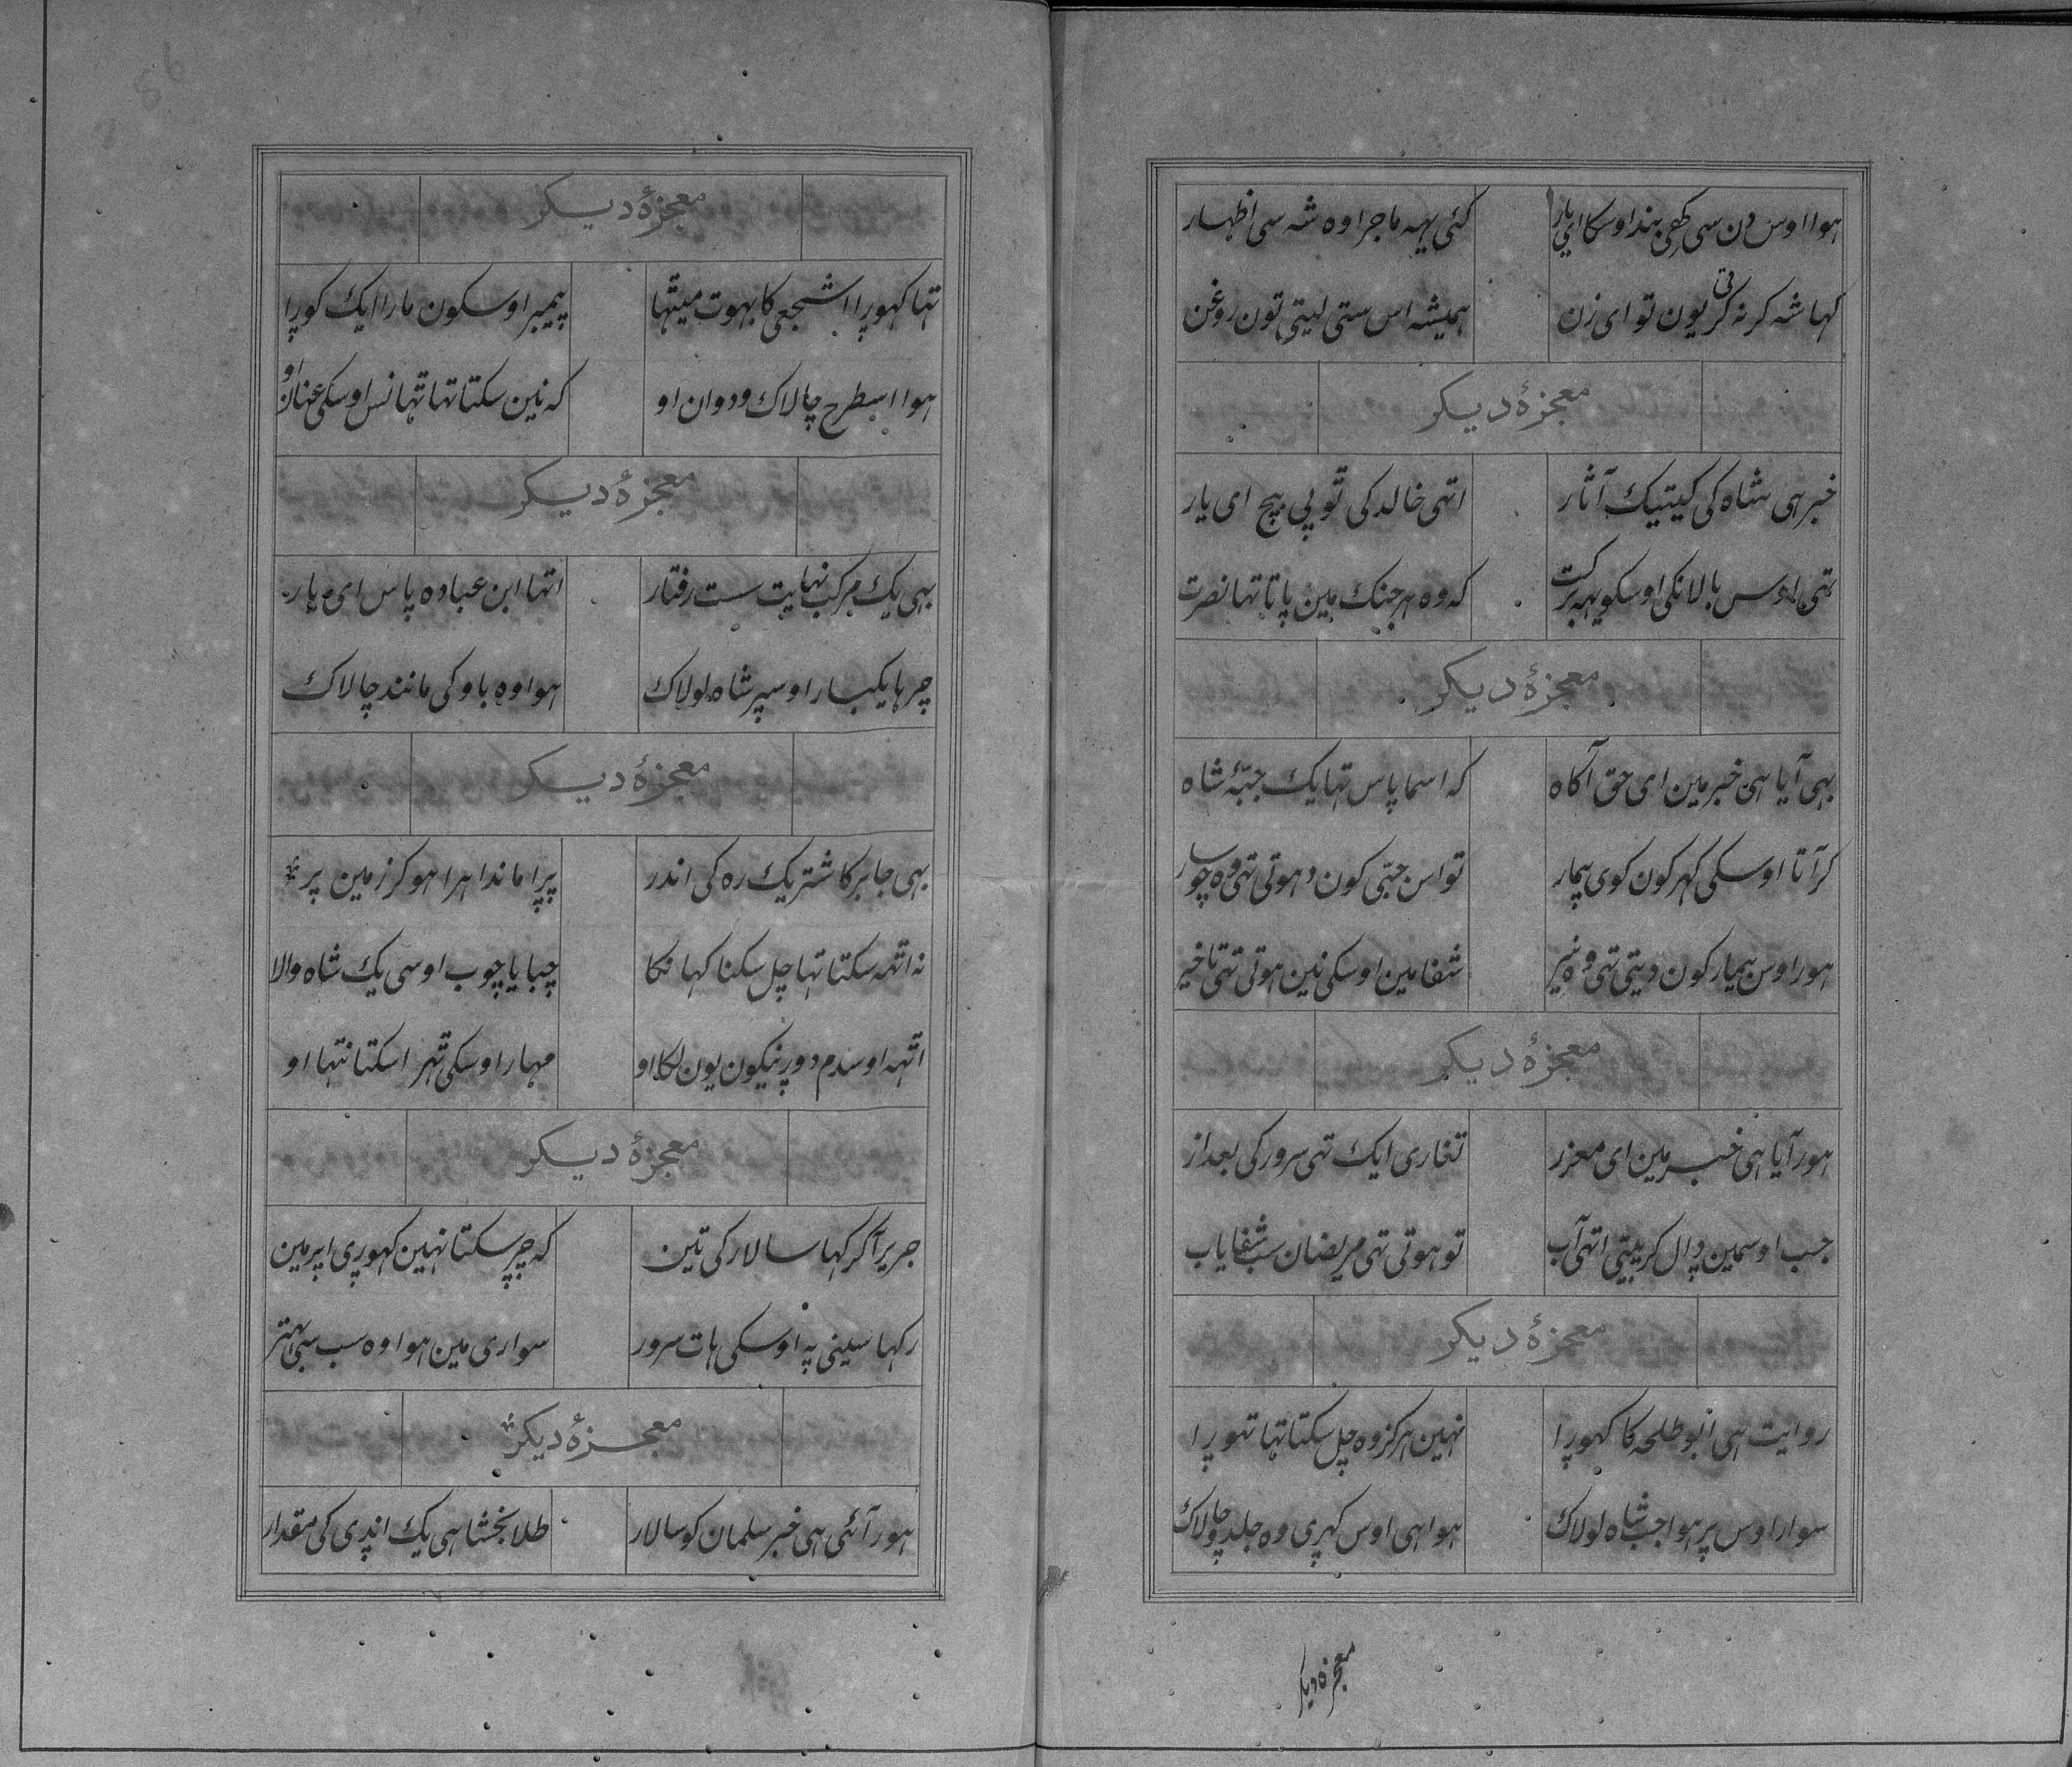 هوا اوس دن سی کھی بند اوسکا ای یار کئی یهه ماجرا وه شه سی اظهار
کها شه کر نه کرتی یون تو ای زن همیشه اس ستی لیتی تون روغن
معجزهٔ دیکر
خبر هی شاه کی کیتیک آثار اتهی خالد کی توپی بیچ ای یار
تهی اوس بالانکی اوسکو یهه برکت که وه هر جنک مین پاتا تها نصرت
معجزهٔ دیکر
بهی آیا هی خبر مین ای حق آکاه که اسما پاس تها یک جبّهٔ شاه
کر آتا اوسکی کهر کون کوی بیمار تو اس جبّی کون دهوتی تهی وه چوسار
هور اوس بیمار کون دیتی تهی وه نیر شفا مین اوسکی نین هوتی تهی تاخیر
معجزهٔ دیکر
هور آیا هی خبر مین ای معزز تغاری ایک تهی سرور کی بعد از
جب اوسمین دال کر پیتی اتهی آب تو هوتی تهی مریضان سب شفایاب
معجزهٔ دیکر
روایت هی ابو طلحه کا کهورا نهین هرکز وه چل سکتا تها تهورا
سوار اوس پر هوا جب شاه لولاک هوا هی اوس کهری وه جلد و چالاک
معجزه دیکر
معجزهٔ دیسکر
تها کهورا اشجعی کا بهوت میتها پیمبر اوسکون مارا ایک کورا
هوا اسطرح چالاک و دوان او که نین سکتا تها تهانس اوسکی عنان او
معجزهٔ دیسکر
بهی یک مرکب نهایت سست رفتار اتها ابن عباده پاس ای یار
چرها یکبار اوسپر شاه لولاک هوا وه باو کی مانند چالاک
معجزهٔ دیسکر
بهی جابر کا شتر یک ره کی اندر پرا ماندا هرا هو کر زمین پر
نه اتهه سکتا تها چل سکنا کها نکا چبایا چوب اوسی یک شاه والا
اتهه اوسدم دورنیکون یون لکا او مهار اوسکی تهرا سکتا نتها او
معجزهٔ دیسکر
جریر آ کر کها سالار کی تین که چر سکتا نهین کهوری اپر مین
رکها سینی په اوسکی هات سرور سواری مین هوا وه سب سی بهتر
معجزهٔ دیکر
هور آئی هی خبر سلمان کو سالار طلا بخشا هی یک اندی کی مقدار